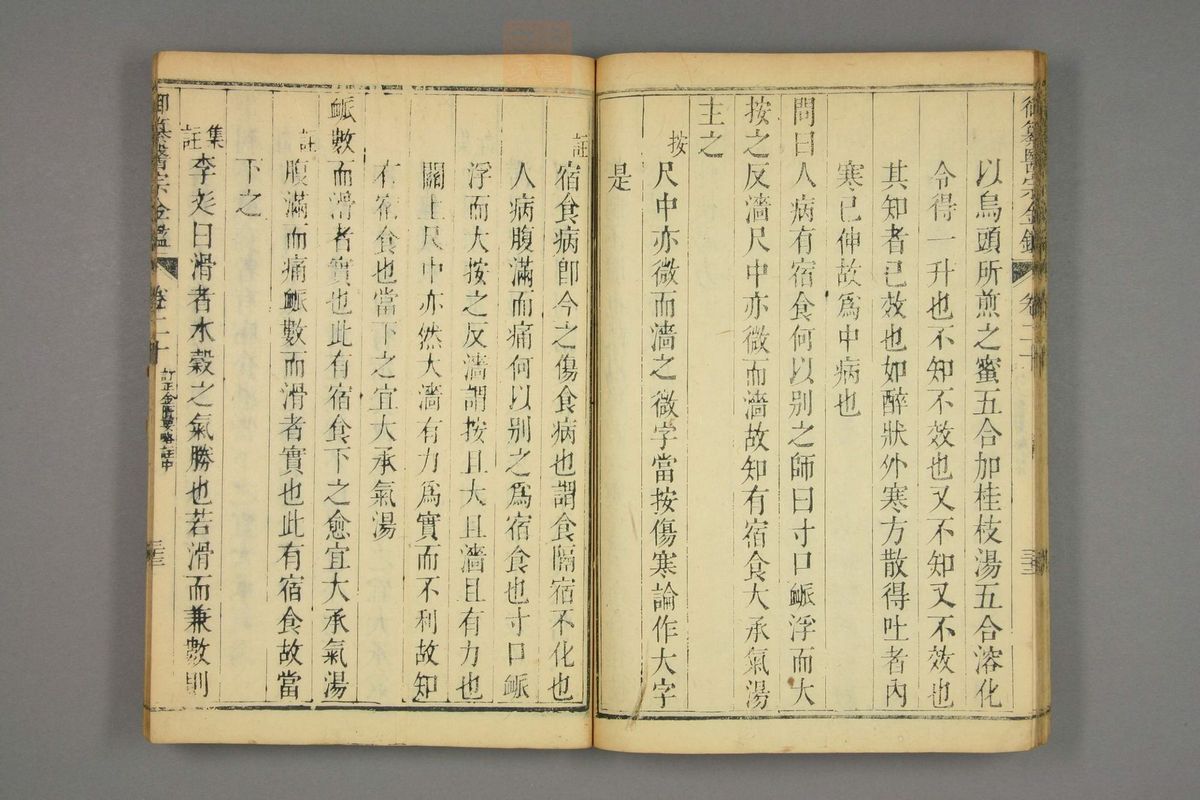 御纂醫宗金鑑 卷二十
以烏頭所煎之蜜五合加桂枝湯五合溶化
令得一升也不知不效也又不知又不效也
其知者已效也如醉狀外寒方散得吐者內
寒已伸故爲中病也
問曰人病有宿食何以別之師曰寸口脈浮而大
按之反濇尺中亦微而濇故知有宿食大承氣湯
主之
按尺中亦微而濇之微字當按傷寒論作大字
是
註宿食病卽今之傷食病也謂食隔宿不化也
人病腹滿而痛何以別之爲宿食也寸口脈
浮而大按之反濇謂按且大且濇且有力也
關上尺中亦然大濇有力爲實而不利故知
有宿食也當下之宜大承氣湯
脈數而滑者實也此有宿食下之愈宜大承氣湯
註腹滿而痛脈數而滑者實也此有宿食故當
下之
集註李彣曰滑者水穀之氣勝也若滑而兼數則
御纂醫宗金鑑 卷二十 訂正金匱要略註中 三三